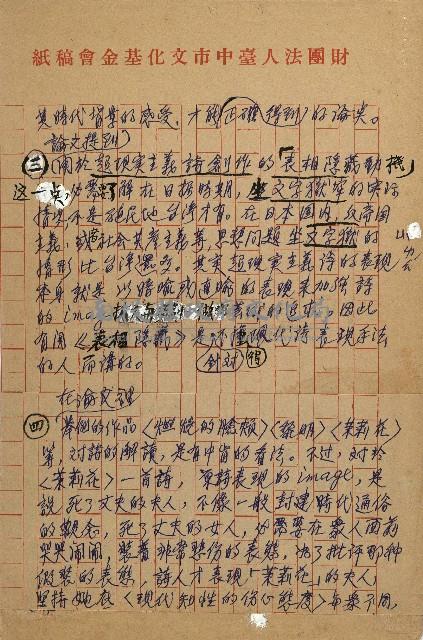 財團法人臺中市文化基金會稿紙
其時代背景的感受，才能正確(得到)的論点。
論文提到
㊂(關於超現実主義詩創作的「表相隱藏動機」
這一点，必需了解在日据時期，坐文字獄牢的実際
情況，不是殖民地台湾才有。在日本國內，反帝国
主義，或社会共產主義等，思想問題坐文字獄的
情形比台湾還多。其実超現実主義詩的表現
本身就是以暗喻或直喻的表現來加強詩
的image，因此
有関〈表相隱藏〉是不懂現代詩表現手法
的人而講的。
針対
在論文裡
㊃舉例的作品〈燃燒的臉頰〉〈黎明〉〈茉莉花〉
等，対詩的解讀，是有中肯的看法。不过，対於
〈茉莉花〉一首詩，表現的image，是
說死了丈夫的夫人，不像一般封建時代通俗
的觀念，死了丈夫的女人，必需要在衆人面前
哭哭鬧鬧，裝着非常悲伤的表態，為了批评那种
假裝的表態，詩人才表現「茉莉花」的夫人，
堅持她在〈現代知性的伤心態度〉与衆不同，